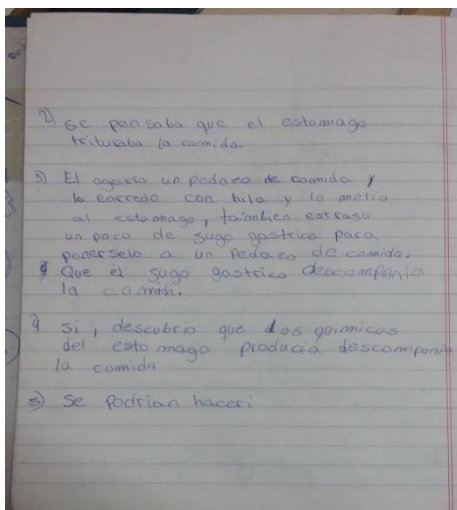 2) se pensaba que el estomago
trituraba la comida
3) El agarra un pedazo de comida y
lo enredo con hilo y lo metio
al estomago, también extraso
un poco de sugo gastrico para
ponerselo a un pedazo de comida.
Que él sugo gastrico descomponía
la comida.
4 si, descubrio que los quimicos
del estomago producia descomponia
la comida
5) se podrian hacer: